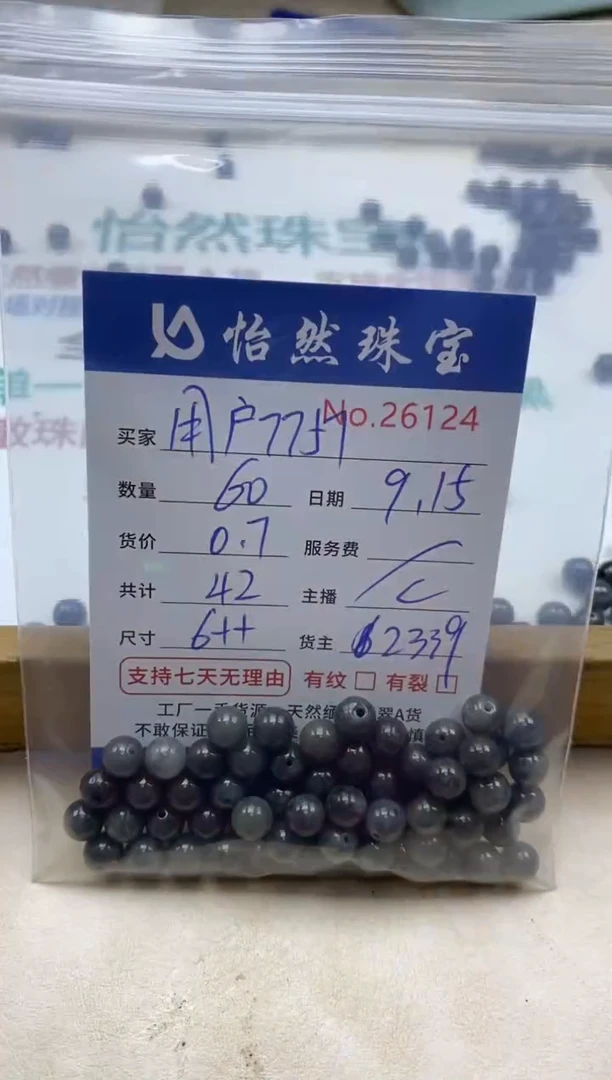 怡然珠宝
怡然珠宝
No.26124
买家 用户7757
数量 60 日期 9.15
货价 0.7 服务费 /
共计 42 主播 C
尺寸 6++ 货主 62339
支持七天无理由 有纹 有裂
工厂一手货源 天然缅 翠A货
不敢保证 慎